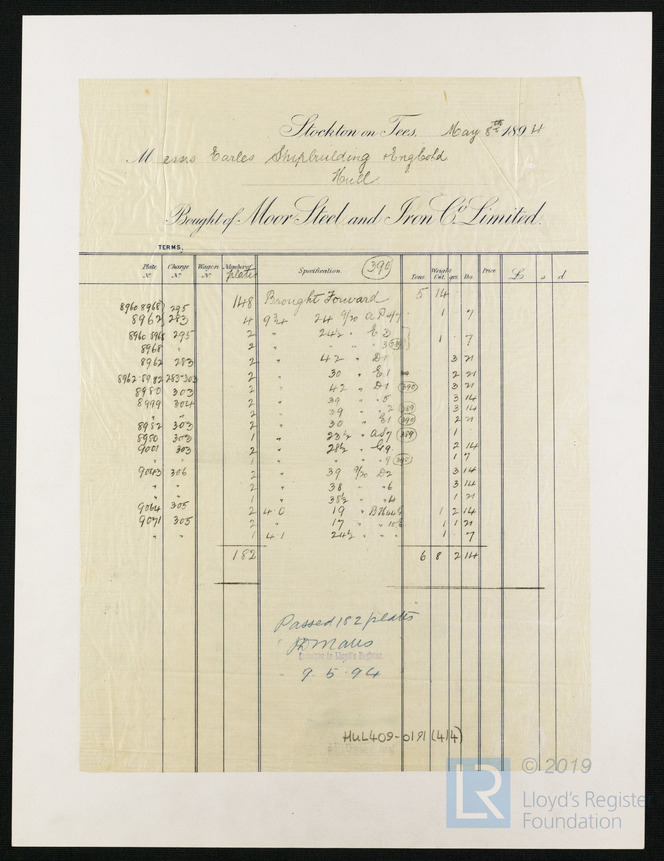 Stockton on Tees, May 8th 1894
Messrs Earles Shipbuilding & Eng Co Ld
Hull
Bought of Moor Steel and Iron Co Limited.
TERMS,
Plate No Charge No Wagon No Number of plates Specification. 390 Tons Weight Cwt. qrs. lbs. Price £ s d
148 Brought Forward 5 14
8960 8968 295
8962 283 4 9 3/4 " 24 9/20 1 7
8960 8968 295 2 " 24½ " " E 3 1 7
8968 " 2 " " "
8962 283 2 " 42 " D1 3 21
8962-8982 283-303 2 " 30 " E1 2 21
8980 303 2 " 42 " D1 390 3 21
8999 304 2 " 39 " " 5 3 14
" " 2 " 39 " " 2 389 3 14
" " 2 " 30 " E1 390 2 21
8982 303
8980 303 1 " 23½ " A57 389 1
9001 303 2 " 28½ " G9 2 14
" " 1 " " " " 9 390 1 7
9043 306 2 " 39 9/20 D2 3 14
" " 2 " 38 " " 6 3 14
" " 1 " 38½ " " 4 1 21
9064 305 2 4.0 19 " 1 2 14
9071 305 2 " 17 " " 1 1 21
" " 1 4.1 24½ " " " 1 7
182 6 8 2 14
Passed 182 plates
Surveyor to Lloyd's Register.
9.5.94
HUL409-0191 (4/4)
© 2019
LR
Lloyd's Register
Foundation